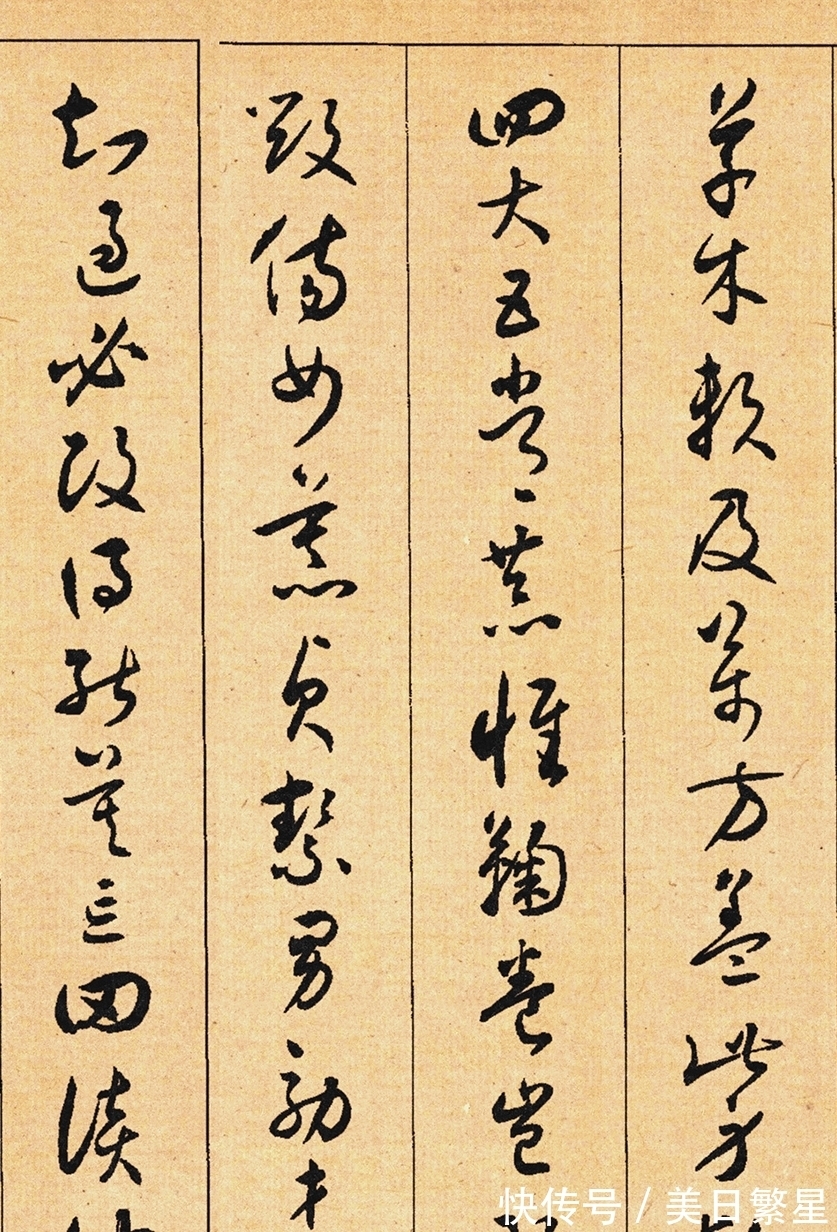 草木賴及萬方蓋此身
四大五常恭惟鞠養豈
毀傷女慕貞絜男效才
知過必改得能莫忘罔談
快传号 / 美日繁星